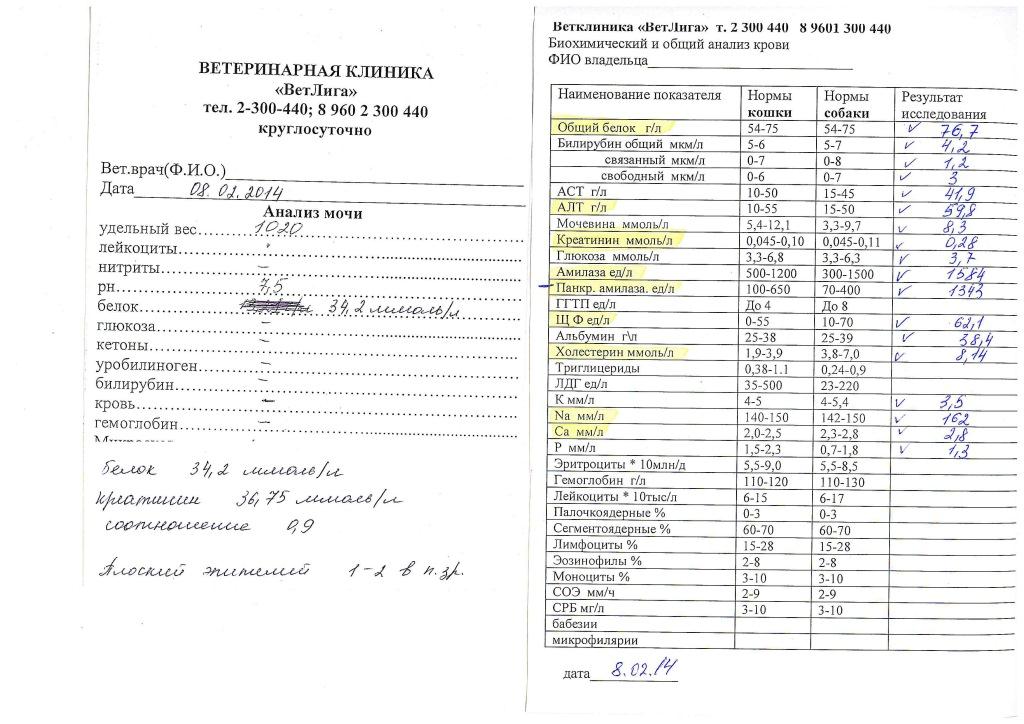 ВЕТЕРИНАРНАЯ КЛИНИКА
«ВетЛига»
тел. 2-300-440; 8 960 2 300 440
круглосуточно
Вет.врач(Ф.И.О.)
Дата 08.02.2014
Анализ мочи
удельный вес 1020
лейкоциты
нитриты –
рн 7,5
белок 34,2 ммоль/л
глюкоза –
кетоны –
уробилиноген –
билирубин –
кровь –
гемоглобин –
белок 34,2 ммоль/л
креатинин 36,75 ммоль/л
соотношение 0,9
Плоский эпителий 1-2 в п.зр.
Ветклиника «ВетЛига» т. 2 300 440 8 9601 300 440
Биохимический и общий анализ крови
ФИО владельца
Наименование показателя Нормы кошки Нормы собаки Результат исследования
Общий белок г/л 54-75 54-75 ✓ 76,7
Билирубин общий мкм/л 5-6 5-7 ✓ 4,2
связанный мкм/л 0-7 0-8 ✓ 1,2
свободный мкм/л 0-6 0-7 ✓ 3
АСТ г/л 10-50 15-45 ✓ 41,9
АЛТ г/л 10-55 15-50 ✓ 59,8
Мочевина ммоль/л 5,4-12,1 3,3-9,7 ✓ 8,3
Креатинин ммоль/л 0,045-0,10 0,045-0,11 ✓ 0,28
Глюкоза ммоль/л 3,3-6,8 3,3-6,3 ✓ 3,7
Амилаза ед/л 500-1200 300-1500 ✓ 1584
Панкр. амилаза. ед/л 100-650 70-400 ✓ 1343
ГГТП ед/л До 4 До 8
Щ Ф ед/л 0-55 10-70 ✓ 62,1
Альбумин г\л 25-38 25-39 ✓ 38,4
Холестерин ммоль/л 1,9-3,9 3,8-7,0 ✓ 8,14
Триглицериды 0,38-1.1 0,24-0,9
ЛДГ ед/л 35-500 23-220
К мм/л 4-5 4-5,4 ✓ 3,5
Na мм/л 140-150 142-150 ✓ 162
Ca мм/л 2,0-2,5 2,3-2,8 ✓ 2,8
Р мм/л 1,5-2,3 0,7-1,8 ✓ 1,3
Эритроциты * 10млн/д 5,5-9,0 5,5-8,5
Гемоглобин г/л 110-120 110-130
Лейкоциты * 10тыс/л 6-15 6-17
Палочкоядерные % 0-3 0-3
Сегментоядерные % 60-70 60-70
Лимфоциты % 15-28 15-28
Эозинофилы % 2-8 2-8
Моноциты % 3-10 3-10
СОЭ мм/ч 2-9 2-9
СРБ мг/л 3-10 3-10
бабезии
микрофилярии
дата 8.02.14